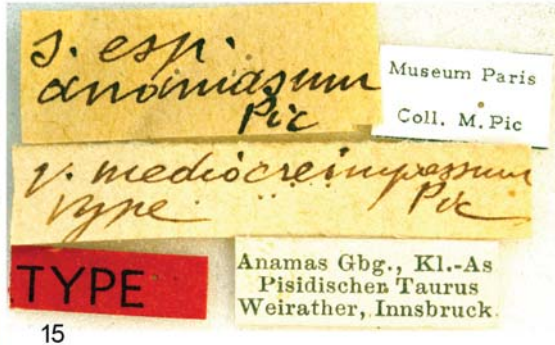 s. esp.
anamasum
Pic
Museum Paris
Coll. M. Pic
v. mediocreimpressum
type Pic
TYPE
Anamas Gbg., Kl.-As
Pisidischen Taurus
Weirather, Innsbruck.
15